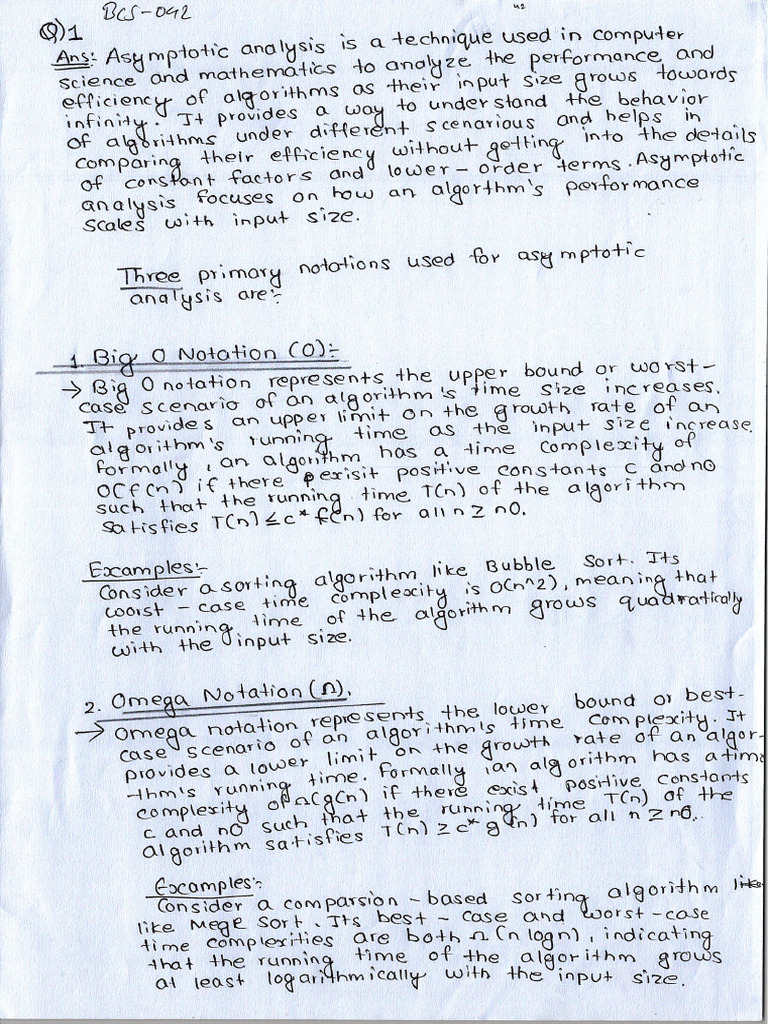 BCS-042
42
Q)1
Ans: Asymptotic analysis is a technique used in computer
science and mathematics to analyze the performance and
efficiency of algorithms as their input size grows towards
infinity. It provides a way to understand the behavior
of algorithms under different scenarious and helps in
comparing their efficiency without getting into the details
of constant factors and lower-order terms. Asymptotic
analysis focuses on how an algorthm's performance
scales with input size.
Three primary notations used for asymptotic
analysis are:-
1. Big O Notation (O):-
→ Big O notation represents the upper bound or worst-
case scenario of an algorithm's time size increases.
It provides an upper limit on the growth rate of an
algorithm's running time as the input size increase.
formally, an algorithm has a time complexity of
O(f(n) if there pexisit positive constants c and n0
such that the running time T(n) of the algorithm
satisfies T(n) ≤ c* f(n) for all n ≥ n0.
Examples:-
Consider a sorting algorithm like Bubble Sort. Its
worst-case time complexity is O(n^2), meaning that
the running time of the algorithm grows quadratically
with the input size.
2. Omega Notation (Ω).
→ Omega notation represents the lower bound or best-
case scenario of an algorithm's time complexity. It
provides a lower limit on the growth rate of an algor-
thm's running time. Formally, an algorithm has a time
complexity of Ω(g(n) if there exist positive constants
c and n0 such that the running time T(n) of the
algorithm satisfies T(n) ≥ c* g(n) for all n ≥ n0..
Examples:-
Consider a comparsion-based sorting algorithm like
like Mege Sort. Its best-case and worst-case
time complexities are both Ω (n logn), indicating
that the running time of the algorithm grows
at least logarithmically with the input size.